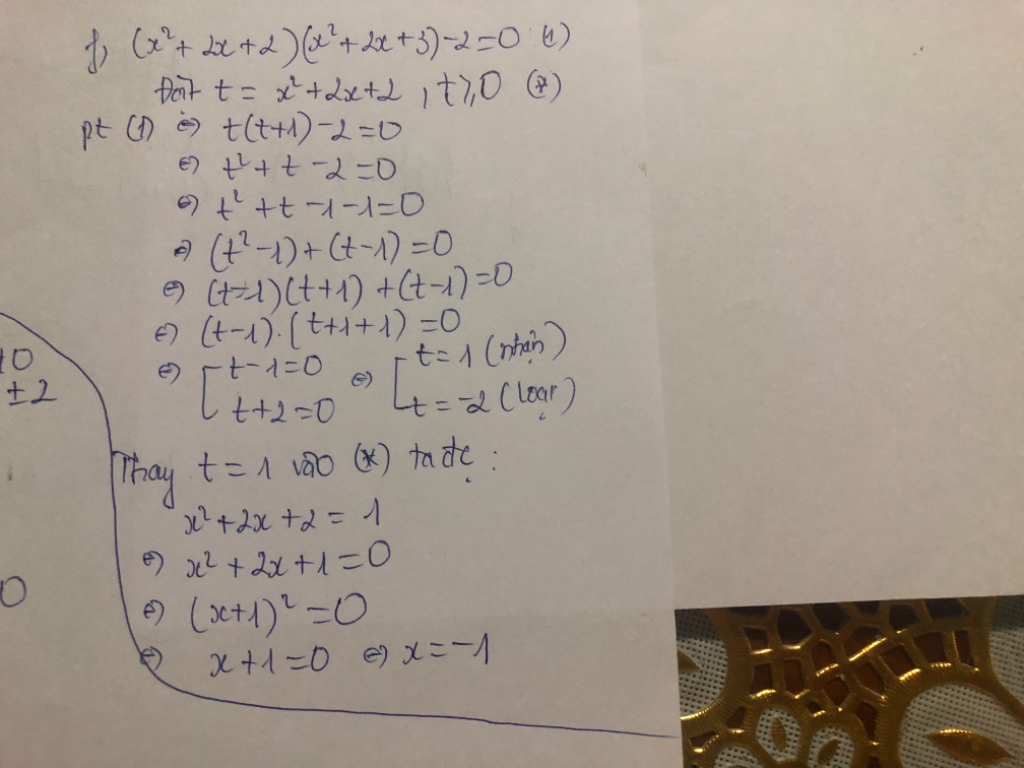 f, (x² + 2x + 2)(x² + 2x + 3) - 2 = 0 (1)
Đặt t = x² + 2x + 2 , t ≥ 0 (*)
pt (1) ⇔ t(t+1) - 2 = 0
⇔ t² + t - 2 = 0
⇔ t² + t - 1 - 1 = 0
⇔ (t² - 1) + (t - 1) = 0
⇔ (t - 1)(t + 1) + (t - 1) = 0
⇔ (t - 1).(t + 1 + 1) = 0
⇔ [ t - 1 = 0 ⇔ [ t = 1 (nhận)
t + 2 = 0 t = -2 (loại)
10
±2
Thay t = 1 vào (*) ta đc :
x² + 2x + 2 = 1
⇔ x² + 2x + 1 = 0
0
⇔ (x+1)² = 0
⇔ x + 1 = 0 ⇔ x = -1